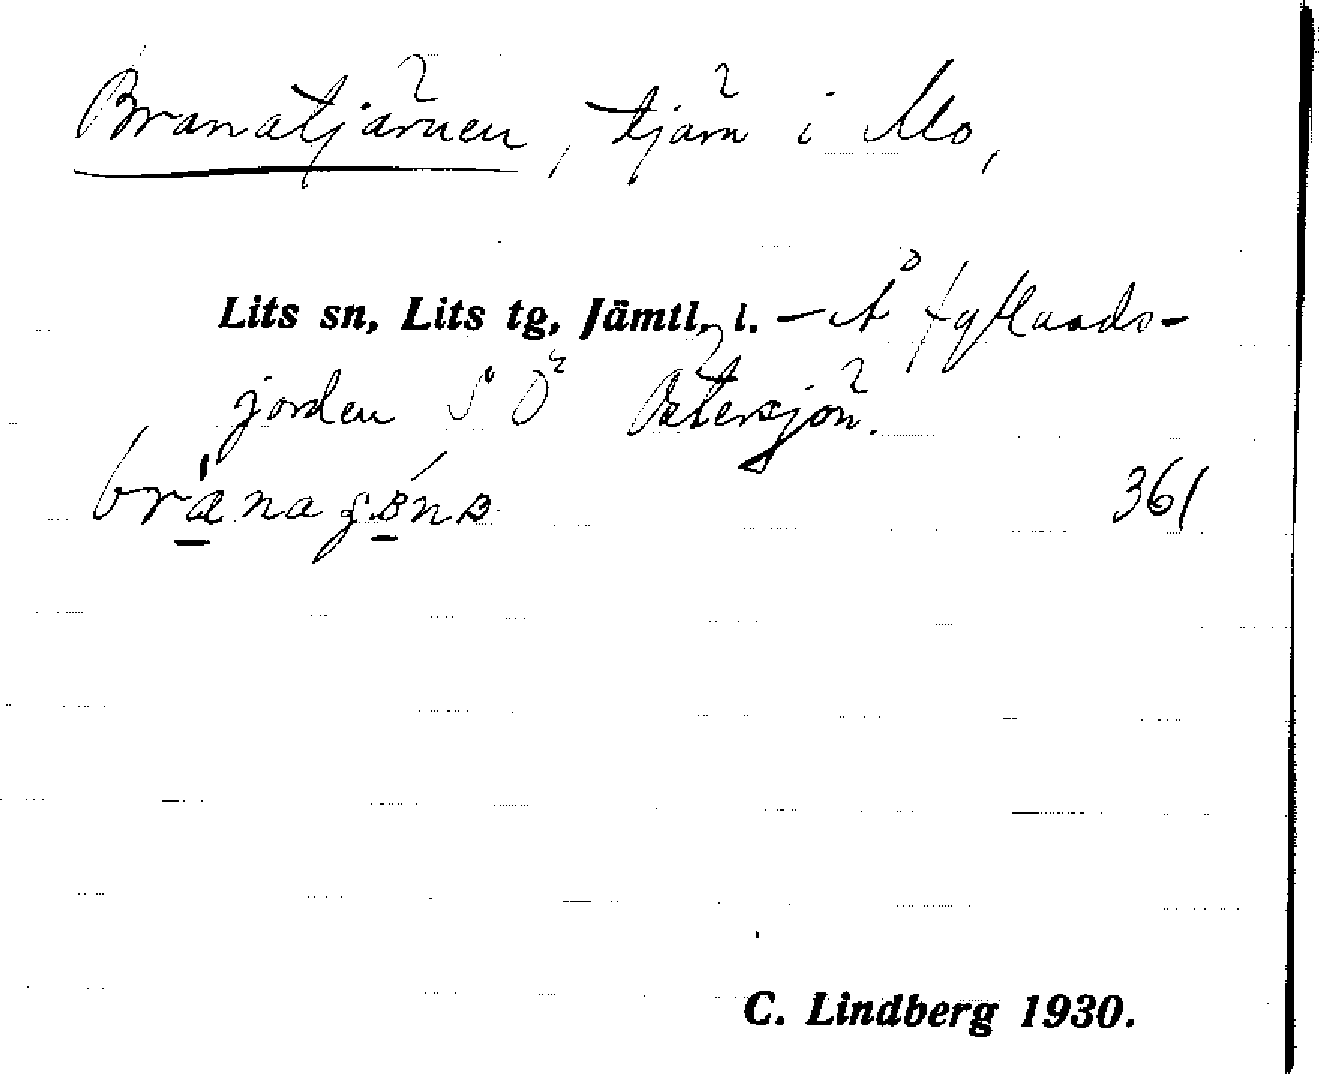 Branatjärnen, tjärn i Mo,
Lits sn, Lits tg, Jämtl. l. – Å
jorden SO Östersjön.
361
C. Lindberg 1930.